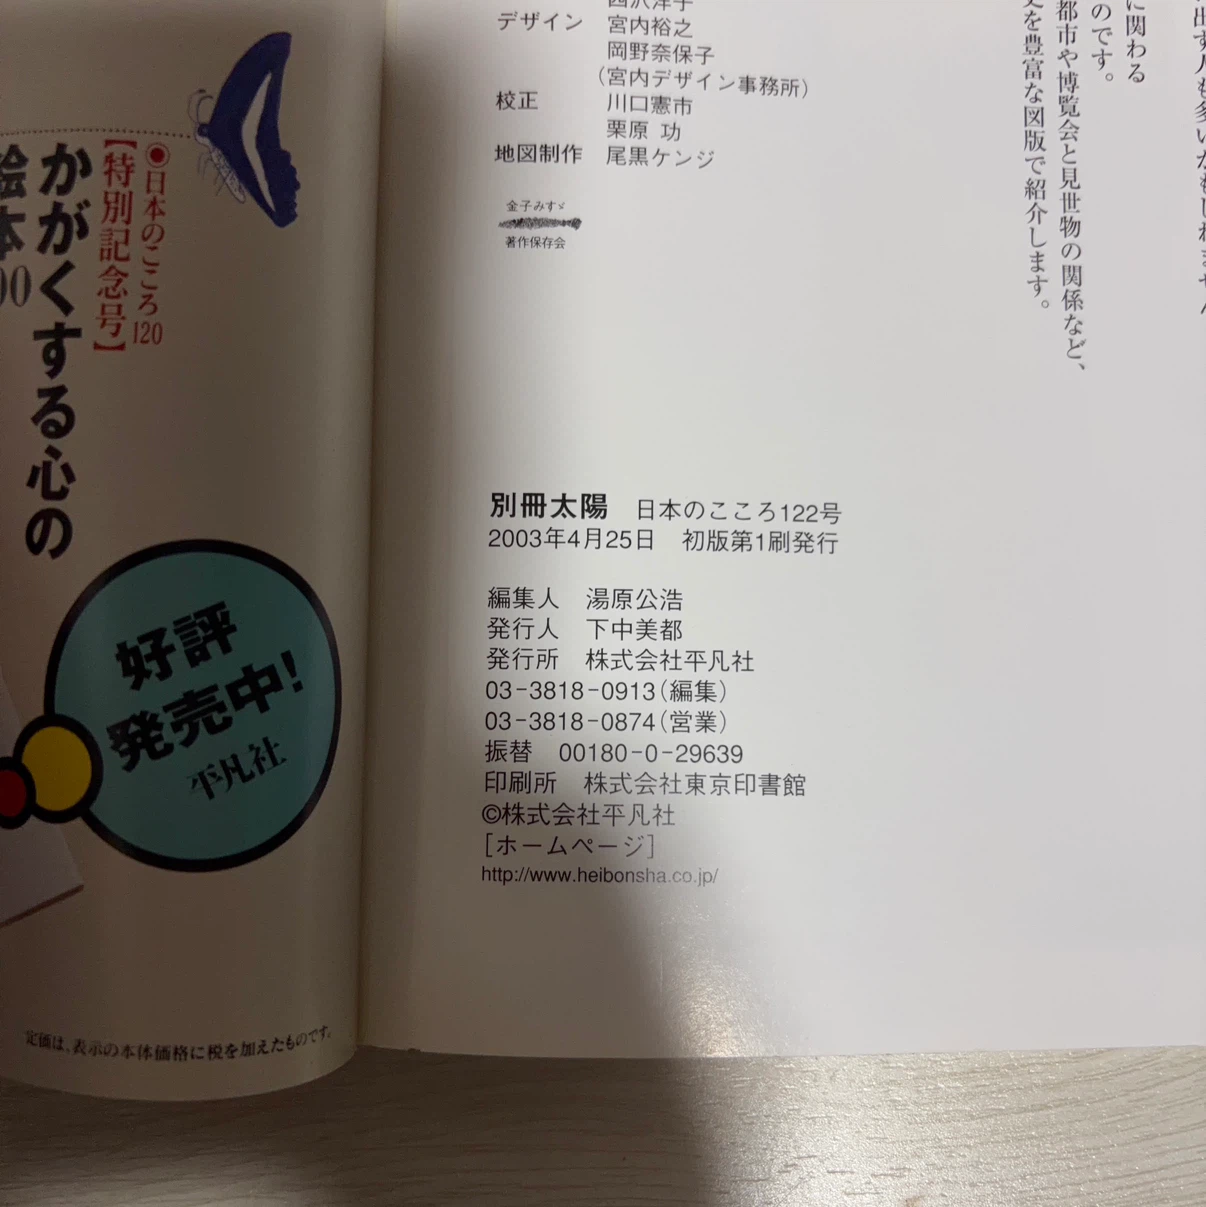 デザイン　宮内裕之
岡野奈保子
（宮内デザイン事務所）
校正　川口憲市
栗原 功
地図制作　尾黒ケンジ
金子みすゞ
著作保存会
に関わる
のです。
都市や博覧会と見世物の関係など、
を豊富な図版で紹介します。
別冊太陽　日本のこころ122号
2003年4月25日　初版第1刷発行
編集人　湯原公浩
発行人　下中美都
発行所　株式会社平凡社
03-3818-0913（編集）
03-3818-0874（営業）
振替　00180-0-29639
印刷所　株式会社東京印書館
©株式会社平凡社
［ホームページ］
http://www.heibonsha.co.jp/
◉日本のこころ120
【特別記念号】
かがくする心の
絵本00
好評
発売中!
平凡社
定価は、表示の本体価格に税を加えたものです。